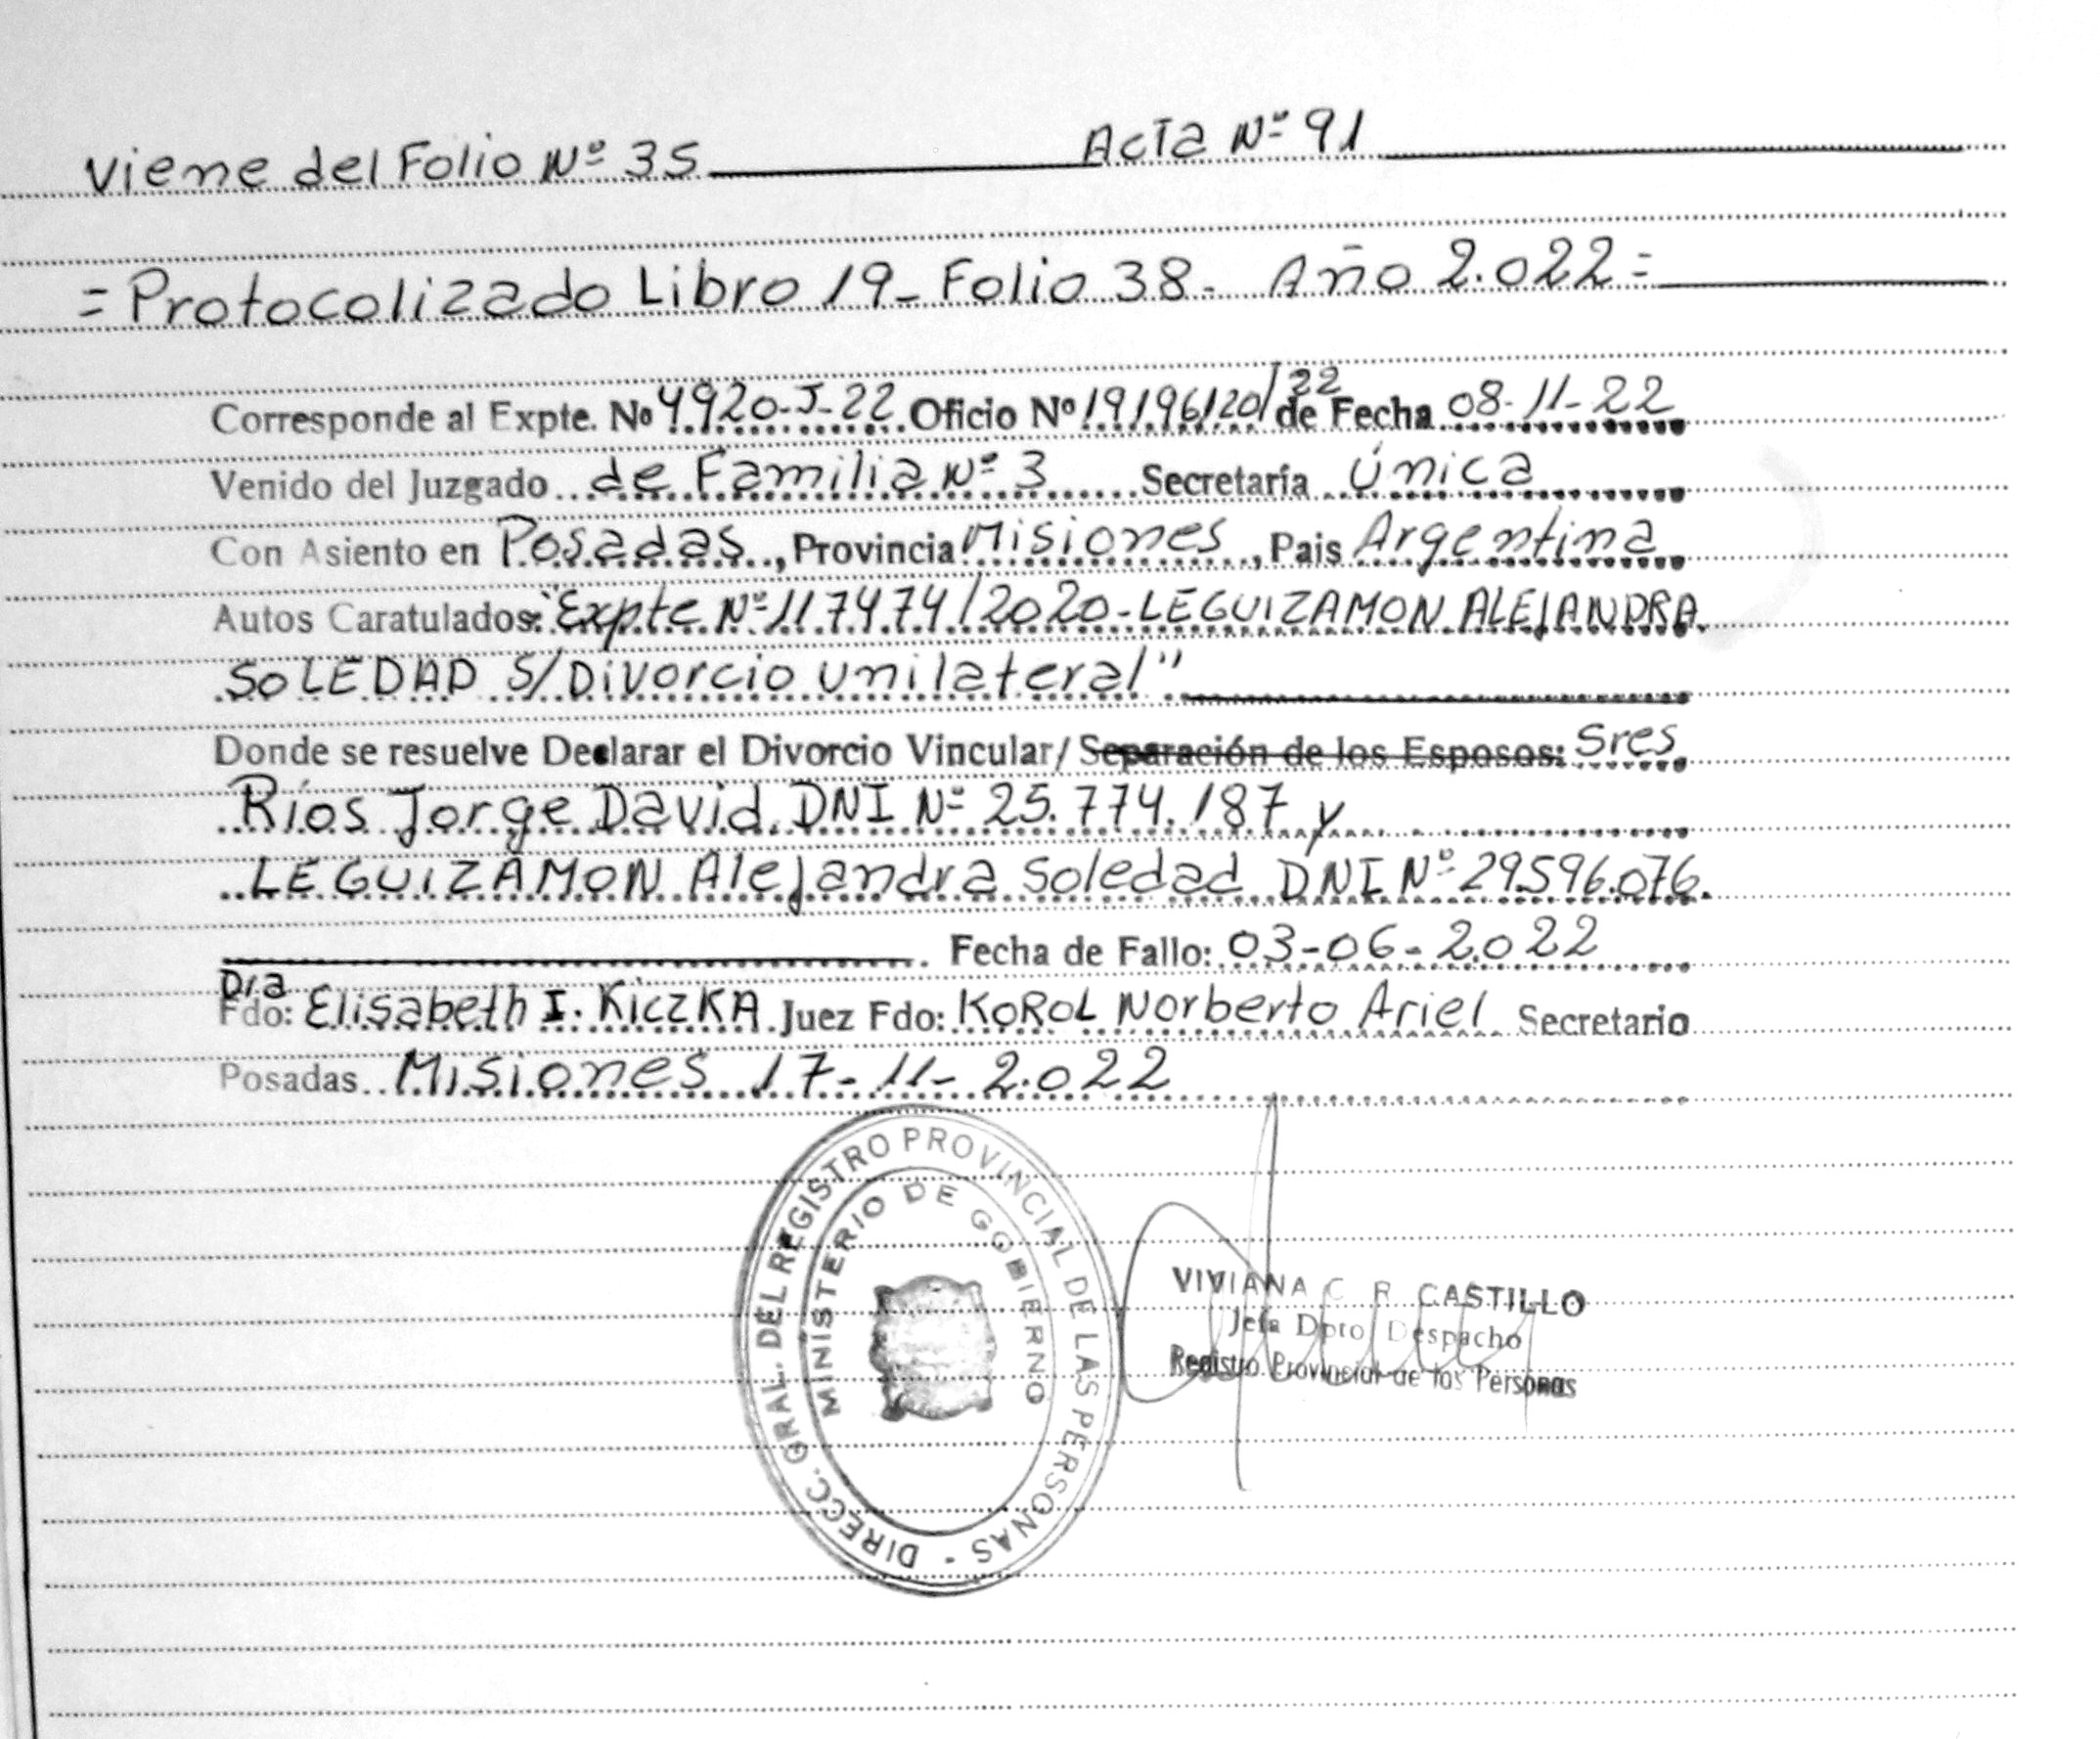 Viene del Folio Nº 35 Acta Nº 91
= Protocolizado Libro 19 - Folio 38 - Año 2.022 =
Corresponde al Expte. Nº 4920-J-22 Oficio Nº 19196120/22 de Fecha 08-11-22
Venido del Juzgado de Familia Nº 3 Secretaría Única
Con Asiento en Posadas, Provincia Misiones, Pais Argentina
Autos Caratulados: "Expte Nº 117474/2020 - LEGUIZAMON ALEJANDRA
SOLEDAD S/Divorcio unilateral"
Donde se resuelve Declarar el Divorcio Vincular/ Separación de los Esposos: Sres
Ríos Jorge David DNI Nº 25.774.187 y
LEGUIZAMON Alejandra Soledad DNI Nº 29.596.076.
Fecha de Fallo: 03-06-2.022
Dra
Fdo: Elisabeth I. KiczKA Juez Fdo: KOROL Norberto Ariel Secretario
Posadas Misiones 17-11-2.022
DIRECC. GRAL. DEL REGISTRO PROVINCIAL DE LAS PERSONAS -
MINISTERIO DE GOBIERNO
VIVIANA C R CASTILLO
Jefa Dpto Despacho
Registro Provincial de las Personas